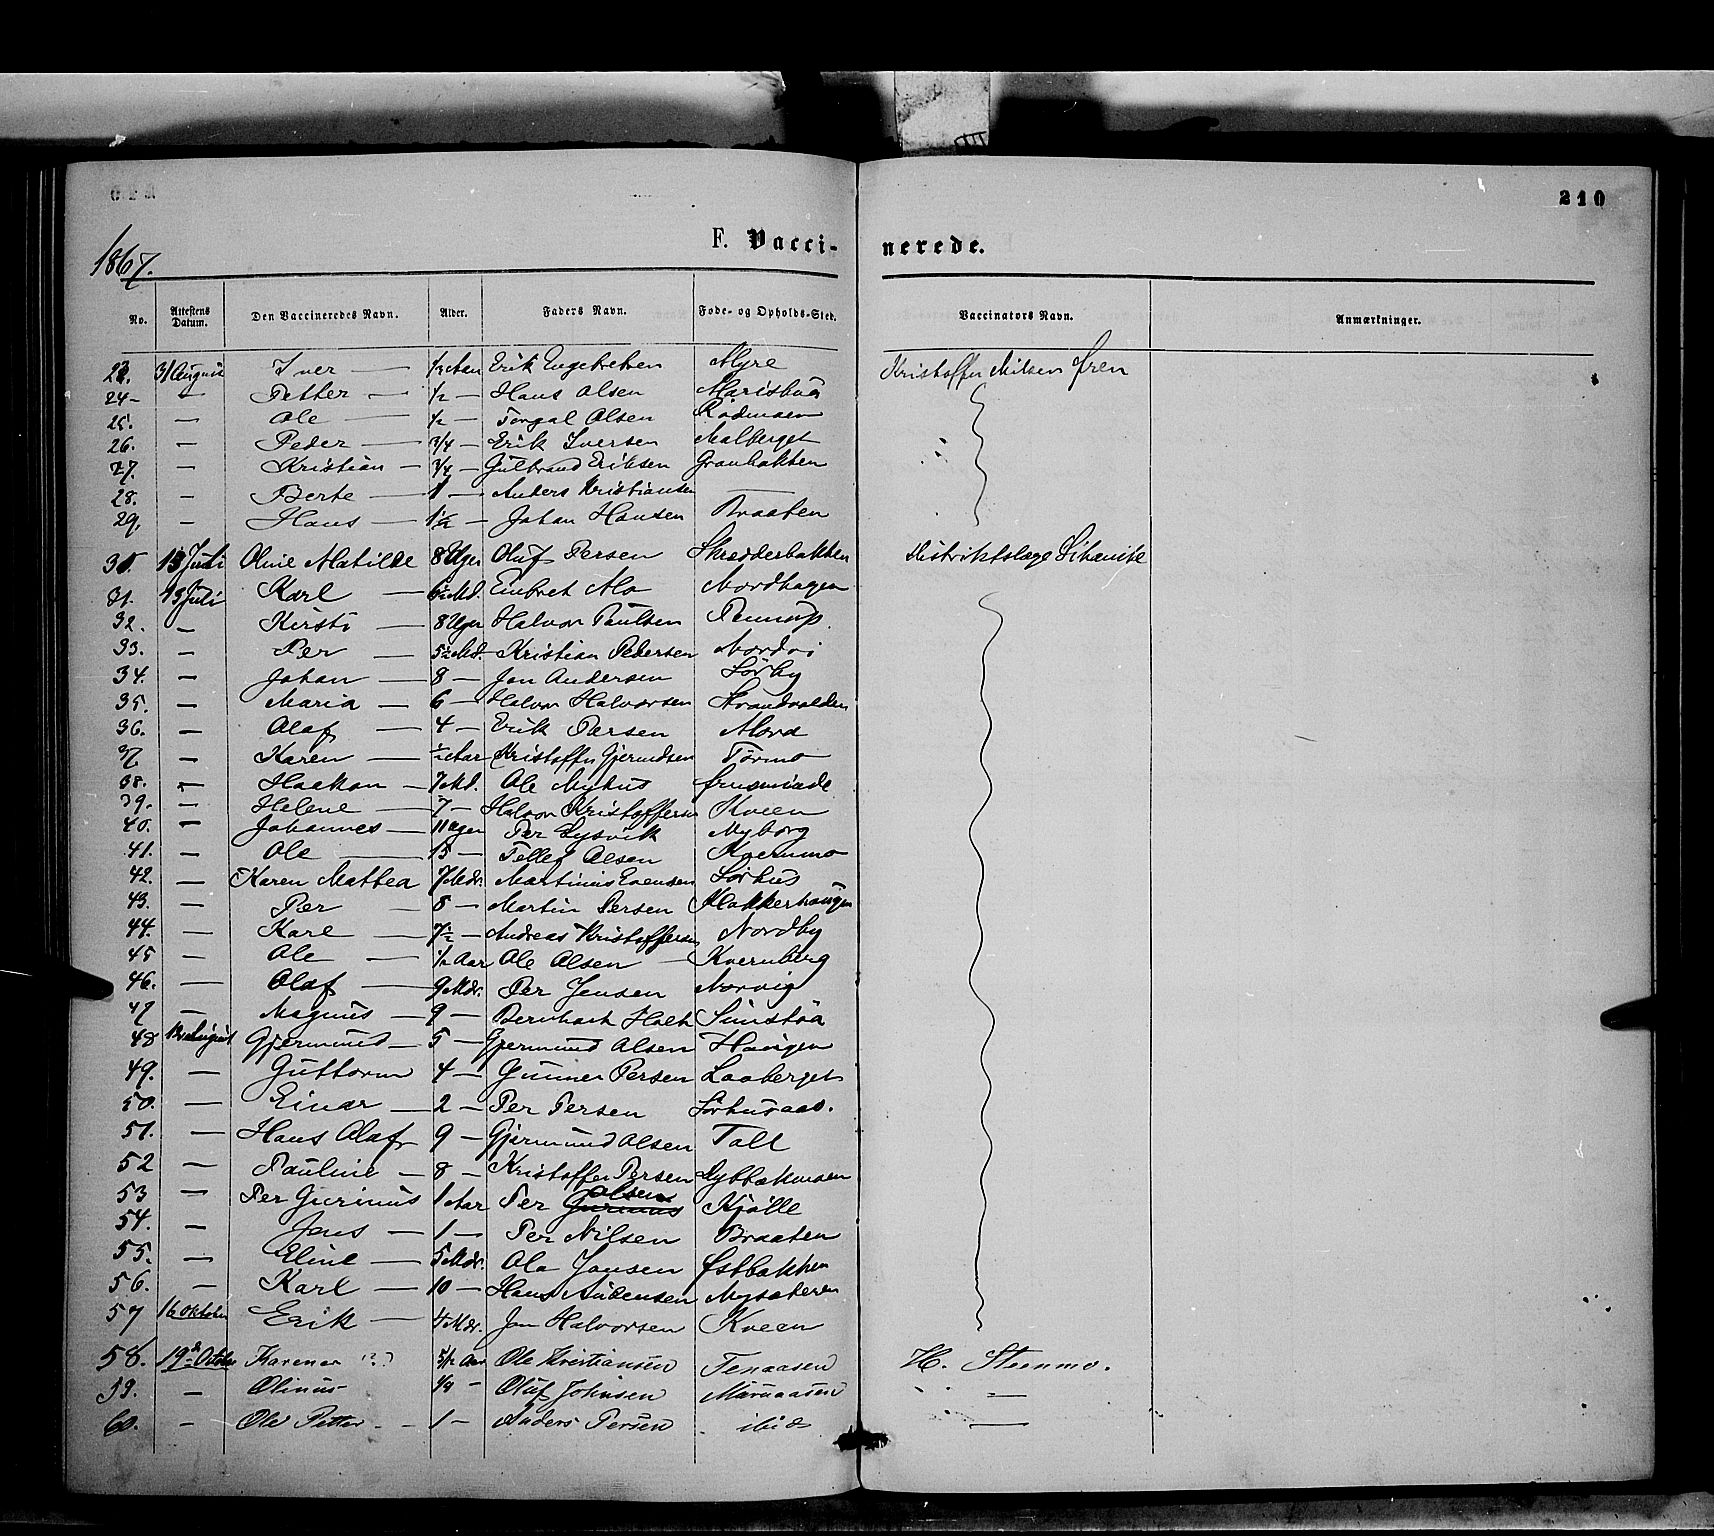 210
1867.
F. Vaccinerede.
No. Attestens Datum. Den Vaccineredes Navn. Alder. Faders Navn. Føde- og Opholds-Sted. Vaccinators Navn. Anmærkninger.
23. 31 August Iver — 1/2 Aar Erik Engebretsen Myre Kristoffer Nilsen Øren
24 — Petter — 1/2 — Hans Olsen
25. — Ole — 1/2 — Torgal Olsen Rødmoen
26. — Peder — 3/4 — Erik Iversen Malberget
27. — Kristian — 3/4 — Gulbrand Eriksen Granbakken
28. — Berte — 1 — Anders Kristiansen —
29. — Hans — 1 1/2 — Johan Hansen Braaten
30. 13 Juli Oline Matilde 8 Uger Oluf Persen Skredderbakken Distriktslæge
31. 13 Juli Karl — 6 1/2 Md. Embret Mo Nordhagen
32. — Kirsti — 8 Uger Halvor Paulsen
33. — Per — 5 1/2 Md. Kristian Pedersen Nordvi
34. — Johan — 8 — Jon Andersen Sørby
35. — Maria — 6 — Halvor Halvorsen Strandvolden
36. — Olaf — 4 — Erik Persen Mora
37 — Karen — 1/2 Aar Kristoffer Gjermundsen Tørmo
38. — Haakon — 7 Md. Ole Myhus
39. — Helene — 7 — Halvor Kristoffersen Kveen
40. — Johannes — 11 Uger Per Lysvik Nyborg
41. — Ole — 15 — Tellef Olsen Kvernmo
42. — Karen Mattea 7 Mdr. Martinus Evensen Sørhus
43. — Per — 8 — Martin Persen Klokkerhaugen
44. — Karl — 7 1/2 — Andreas Kristoffersen Nordby
45 — Ole — 1/2 Aar Ole Olsen — Kvernberg
46. — Olaf — 9 Mdr. Per Jensen Norvig
47 — Magnus — 9 — Bernhart Holt Sundstøa
48 August Gjermund — 5 — Gjermund Olsen Haugen
49. — Guttorm 4 — Gunner Persen Laaberget
50. — Einar — 2 — Per Persen Sørhusaas.
51. — Hans Olaf 9 — Gjermund Olsen Toll
52 — Pauline — 8 — Kristoffer Persen
53 — Per Gurinus 1 Aar Per Olsen Kjølle
54. — Jens — 1 — Per Nilsen Braaten
55. — Eline — 5 Mdr. Ola Jonsen Østbakken
56. — Karl — 10 — Hans Audensen Nysæteren
57 16 Oktober Erik — 4 Mdr. Jon Halvorsen Kveen
58. 19de October Karener (?) 5/12 Aar Ole Kristiansen Tenaasen H. Steenmo.
59. — Olinus 1/4 — Oluf Johnsen Moruaasen —
60. — Ole Petter — 1 — Anders Persen ibid —